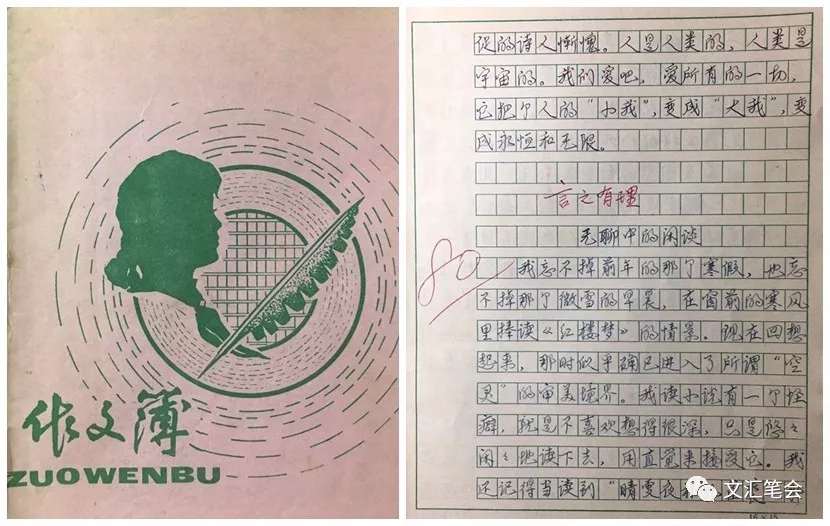 作文簿
ZUOWENBU
促的诗人惭愧。人是人类的，人类是
宇宙的。我们爱吧，爱所有的一切，
它把个人的“小我”，变成“大我”，变
成永恒和无限。
言之有理
无聊中的闲谈
80
我忘不掉前年的那个寒假，也忘
不掉那个微雪的早晨，在窗前的寒风
里捧读《红楼梦》的情景。现在回想
起来，那时似乎确已进入了所谓“空
灵”的审美境界。我读小说有一个怪
癖，就是不喜欢想得很深，只是悠々
闲々地读下去，用直觉来接受它。我
还记得当读到“晴雯夜
文汇笔会